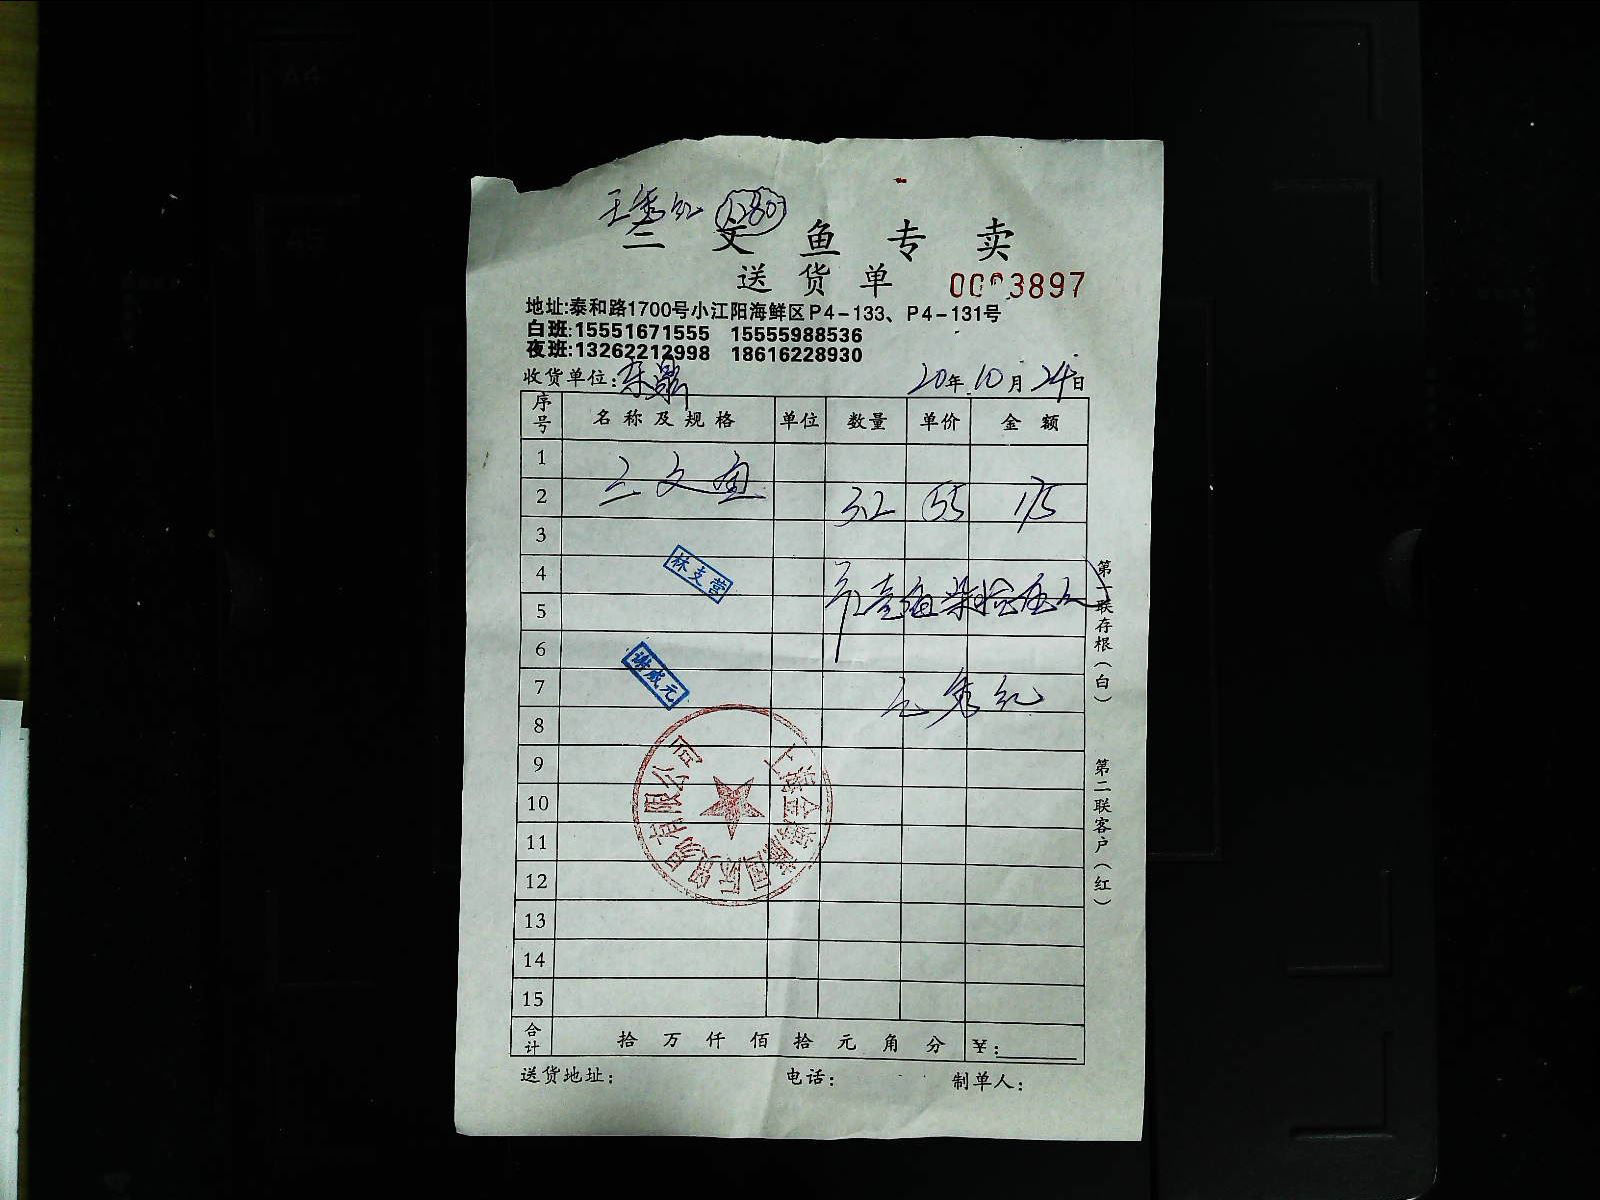 王秀红
三文鱼专卖
送货单 0003897
地址:泰和路1700号小江阳海鲜区P4-133、P4-131号
白班:15551671555 15555988536
夜班:13262212998 18616228930
收货单位: 20年10月24日
序号 名称及规格 单位 数量 单价 金额
1
2 三文鱼 3.2 55 175
3
4
林支营
5 壹佰柒拾伍元
6
谢咸元
7 王秀红
8
9
10
11
12
13
14
15
上海金海莎国际贸易有限公司
合计 拾万仟佰拾元角分 ¥:
送货地址: 电话: 制单人:
第一联存根(白)
第二联客户(红)